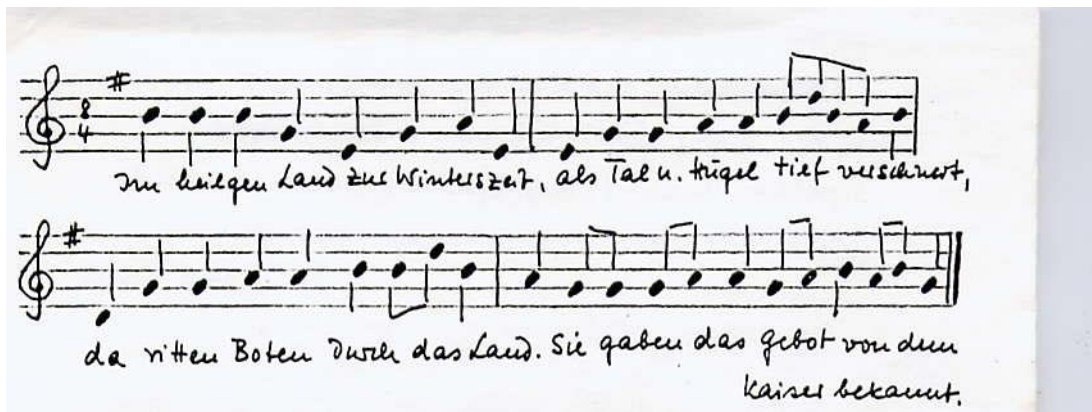 8
4
Im heilgen Land zur Winterszeit, als Tal u. Hügel tief verschneit,
da ritten Boten durch das Land. Sie gaben das Gebot von dem
Kaiser bekannt.